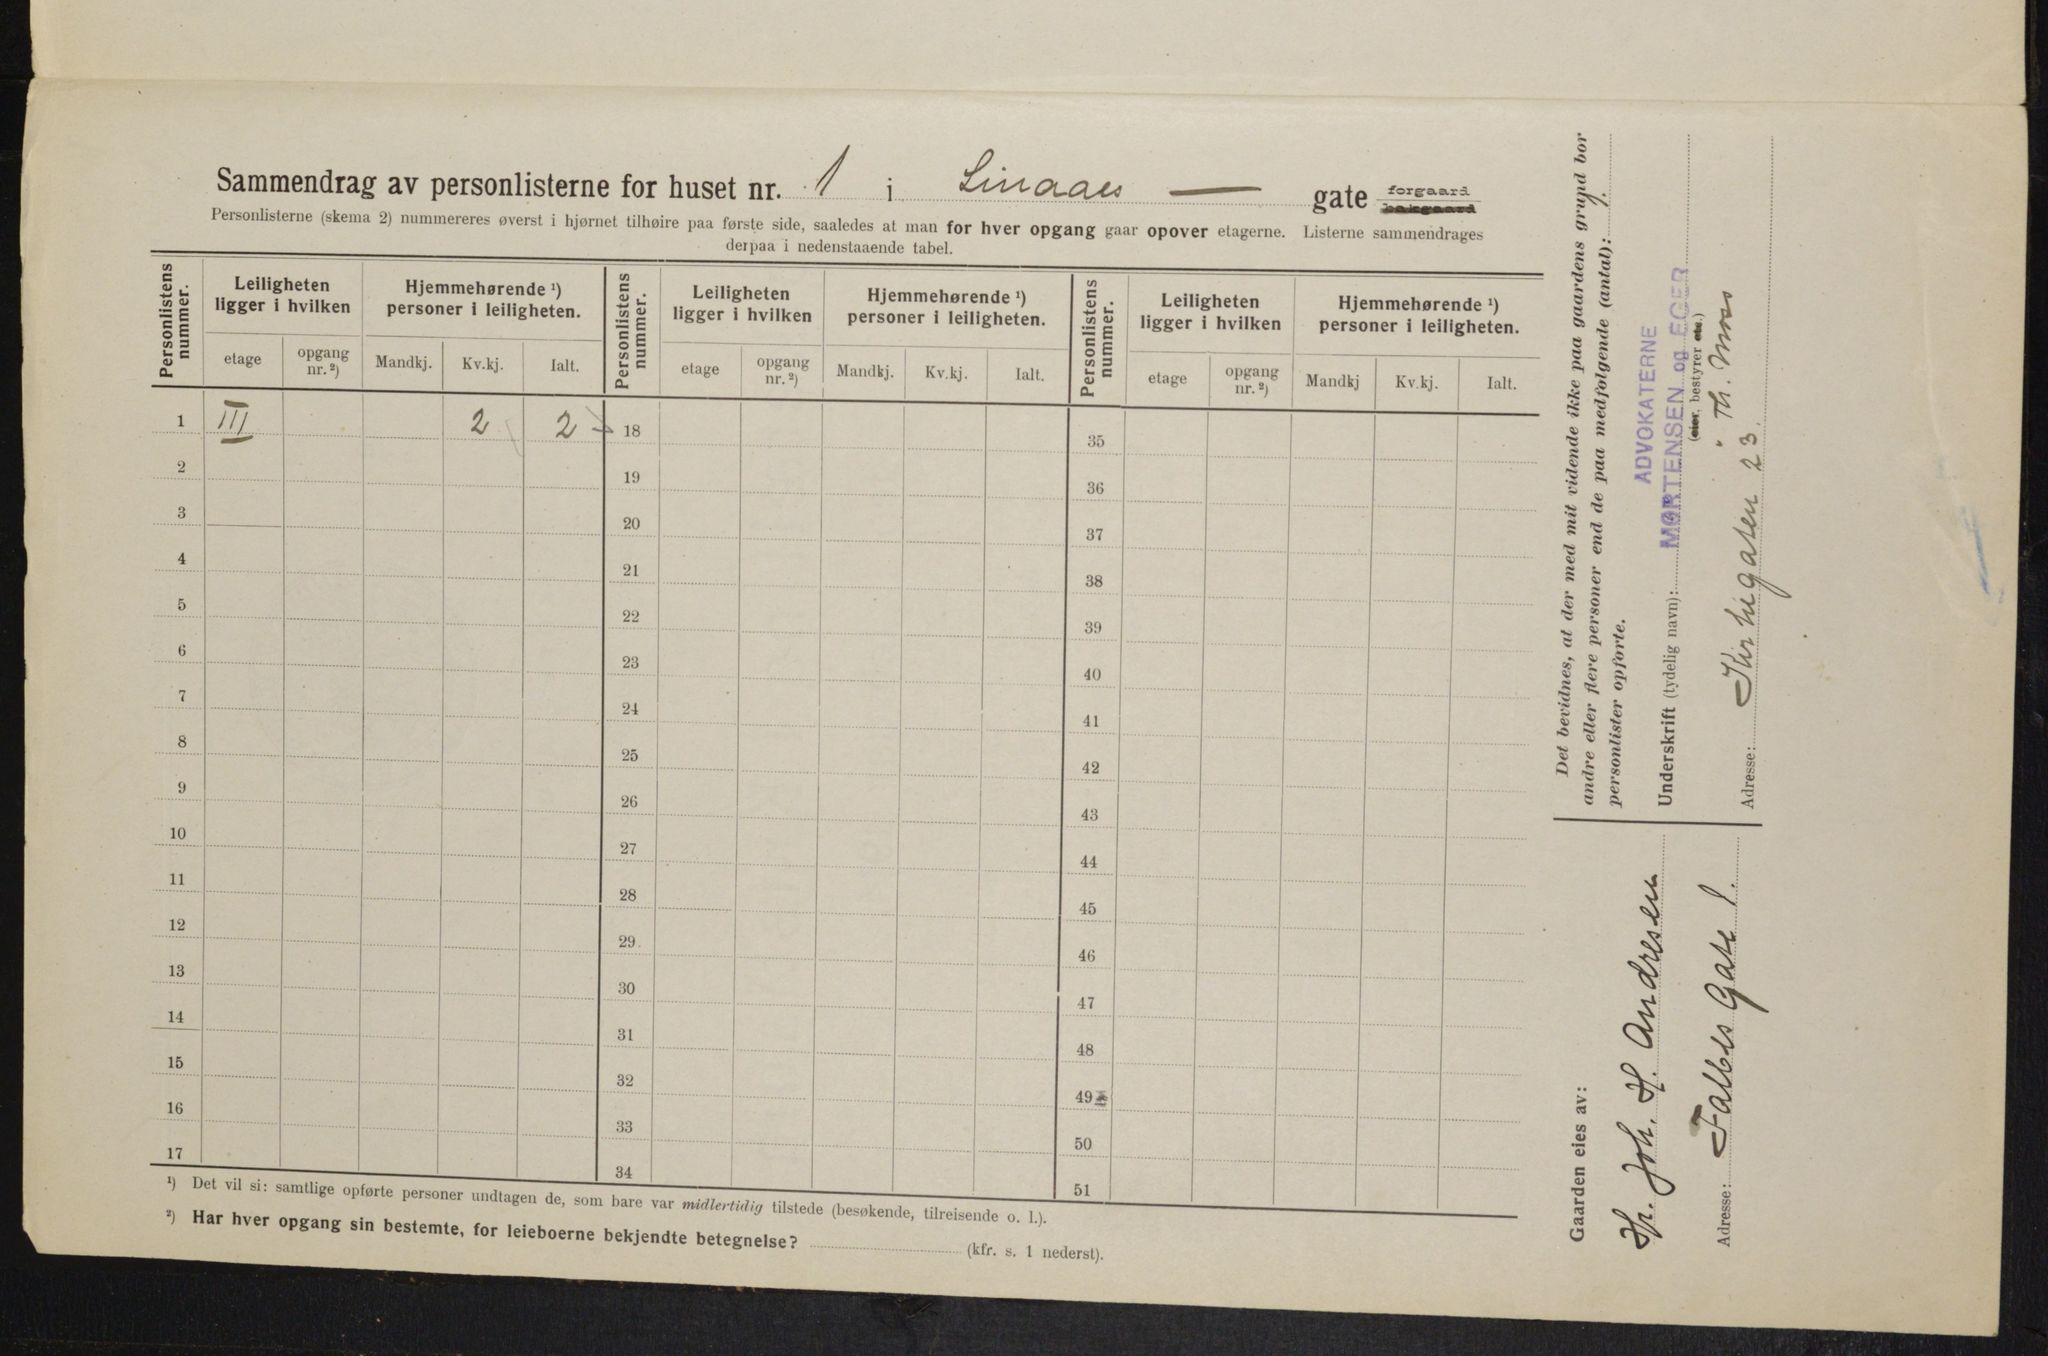 Sammendrag av personlisterne for huset nr. 1 i Sinaaes — gate forgaard bakgaard
Personlisterne (skema 2) nummereres øverst i hjørnet tilhøire paa første side, saaledes at man for hver opgang gaar opover etagerne. Listerne sammendrages
derpaa i nedenstaaende tabel.
Personlistens nummer. Leiligheten ligger i hvilken Hjemmehørende ¹) personer i leiligheten. Personlistens nummer. Leiligheten ligger i hvilken Hjemmehørende ¹) personer i leiligheten. Personlistens nummer. Leiligheten ligger i hvilken Hjemmehørende ¹) personer i leiligheten.
etage opgang nr. ²) Mandkj. Kv.kj. Ialt. etage opgang nr. ²) Mandkj. Kv.kj. Ialt. etage opgang nr. ²) Mandkj Kv.kj. Ialt.
1 III 2 2 18 35
2 19 36
3 20 37
4 21 38
5 22 39
6 23 40
7 24 41
8 25 42
9 26 43
10 27 44
11 28 45
12 29 46
13 30 47
14 31 48
15 32 49
16 33 50
17 34 51
¹) Det vil si: samtlige opførte personer undtagen de, som bare var midlertidig tilstede (besøkende, tilreisende o. l.).
²) Har hver opgang sin bestemte, for leieboerne bekjendte betegnelse? (kfr. s. 1 nederst).
Det bevidnes, at der med mit vidende ikke paa gaardens grund bor
andre eller flere personer end de paa medfølgende (antal): 1.
personlister opførte.
ADVOKATERNE
Underskrift (tydelig navn): MORTENSEN og EGER
(eier, bestyrer etc.)
Th.
Adresse: Kirkegaten 23.
Gaarden eies av:
Hr. Joh. H. Andresen
Adresse: Falbes Gate 1.